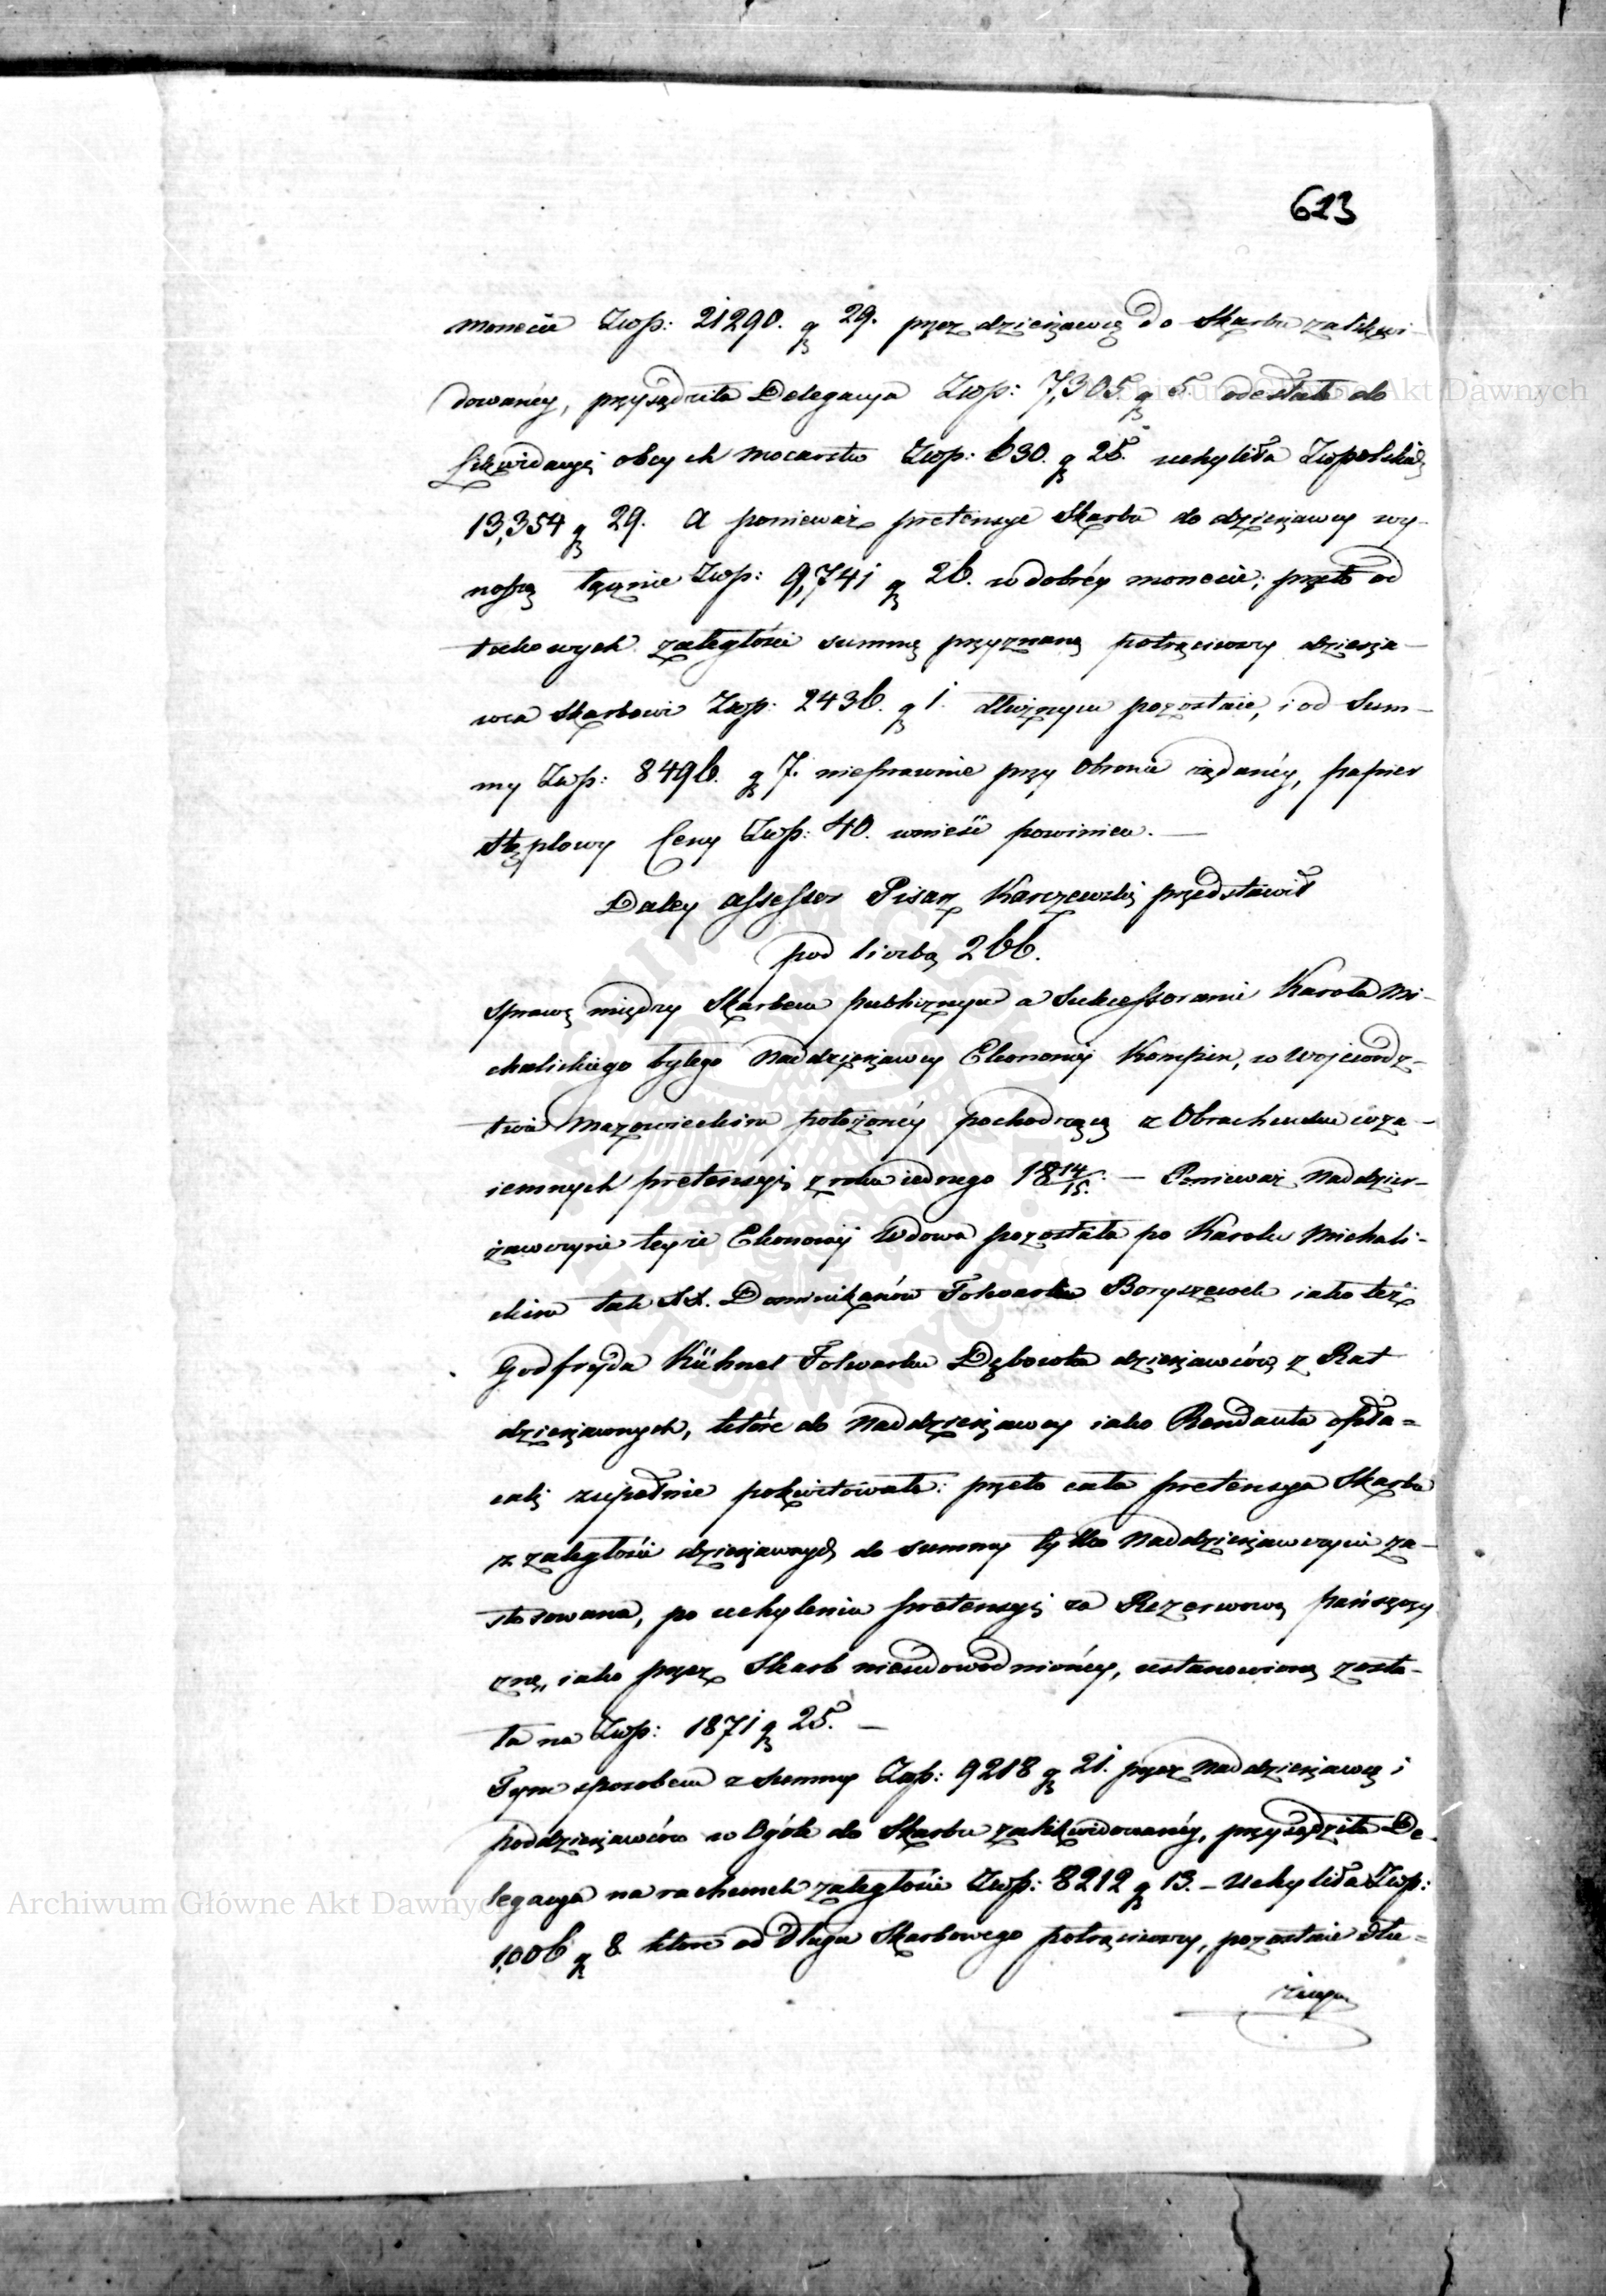 613
monecie Złłp: 21290. gr 29. przez dzierżawcę do Skarbu zalikwi-
dowanéy, przysądziła Delegacya Złłp: 7,305. gr 5. odesłała do
Likwidacyi obcych mocarstw Złłp: 630. gr 25. uchyliła Złłpolskich
13,354 gr 29. A ponieważ pretensye Skarbu do dzierżawcy wy-
noszą łącznie Złłp: 9,741 gr 26. w dobréy monecie; przeto od
takowych zaległości summę przyznaną potrąciwszy dzierża-
wca Skarbowi Złłp: 2436. gr 1. dłużnym pozostaie, i od Sum-
my Złłp: 8496. gr 7. nieprawnie przy Obronie żądanéy, papier
stęplowy Ceny Złłp: 40. wnieść powinien. —
Daley Assessor Pisarz Karczewski przedstawił
pod liczbą 266.
Sprawę między Skarbem publicznym a Sukcessorami Karola Mi-
chalickiego byłego Naddzierżawcy Ekonomij Kampin, w Wojewódz-
twie Mazowieckim położonéy pochodzącą z Obrachunku wza-
iemnych pretensyi z roku iednego 18 14/15. — Ponieważ Naddzier-
żawczyni teyże Ekonomij Wdowa pozostała po Karolu Michali-
ckim tak XX. Dominikanów Folwarku Boryszewek iako też
Godfryda Kühnel Folwarku Dębówka dzierżawców z Rat
dzierżawnych, które do Naddzierżawcy iako Rendanta opła-
cali zupełnie pokwitowała: przeto cała pretensya Skarbu
z zaległości dzierżawnych do summy tylko Naddzierżawczyni za-
stosowana, po uchyleniu pretensyi za Rezerwową pańszczy
znę, iako przez Skarb nieudowodnionéy, ustanowioną zosta-
ła na Złłp: 1871 gr 25. —
Tym sposobem z Summy Złłp: 9218 gr 21. przez Naddzierżawcę i
poddzierżawców w Ogóle do Skarbu zalikwidowanéy, przysądziła De-
legacya na rachunek zaległości Złłp: 8212 gr 13. – Uchyliła Złłp:
1,006 gr 8 które od Długu Skarbowego potrąciwszy, pozostaie dłu-
żnym
Archiwum Główne Akt Dawnych
Archiwum Główne Akt Dawnych